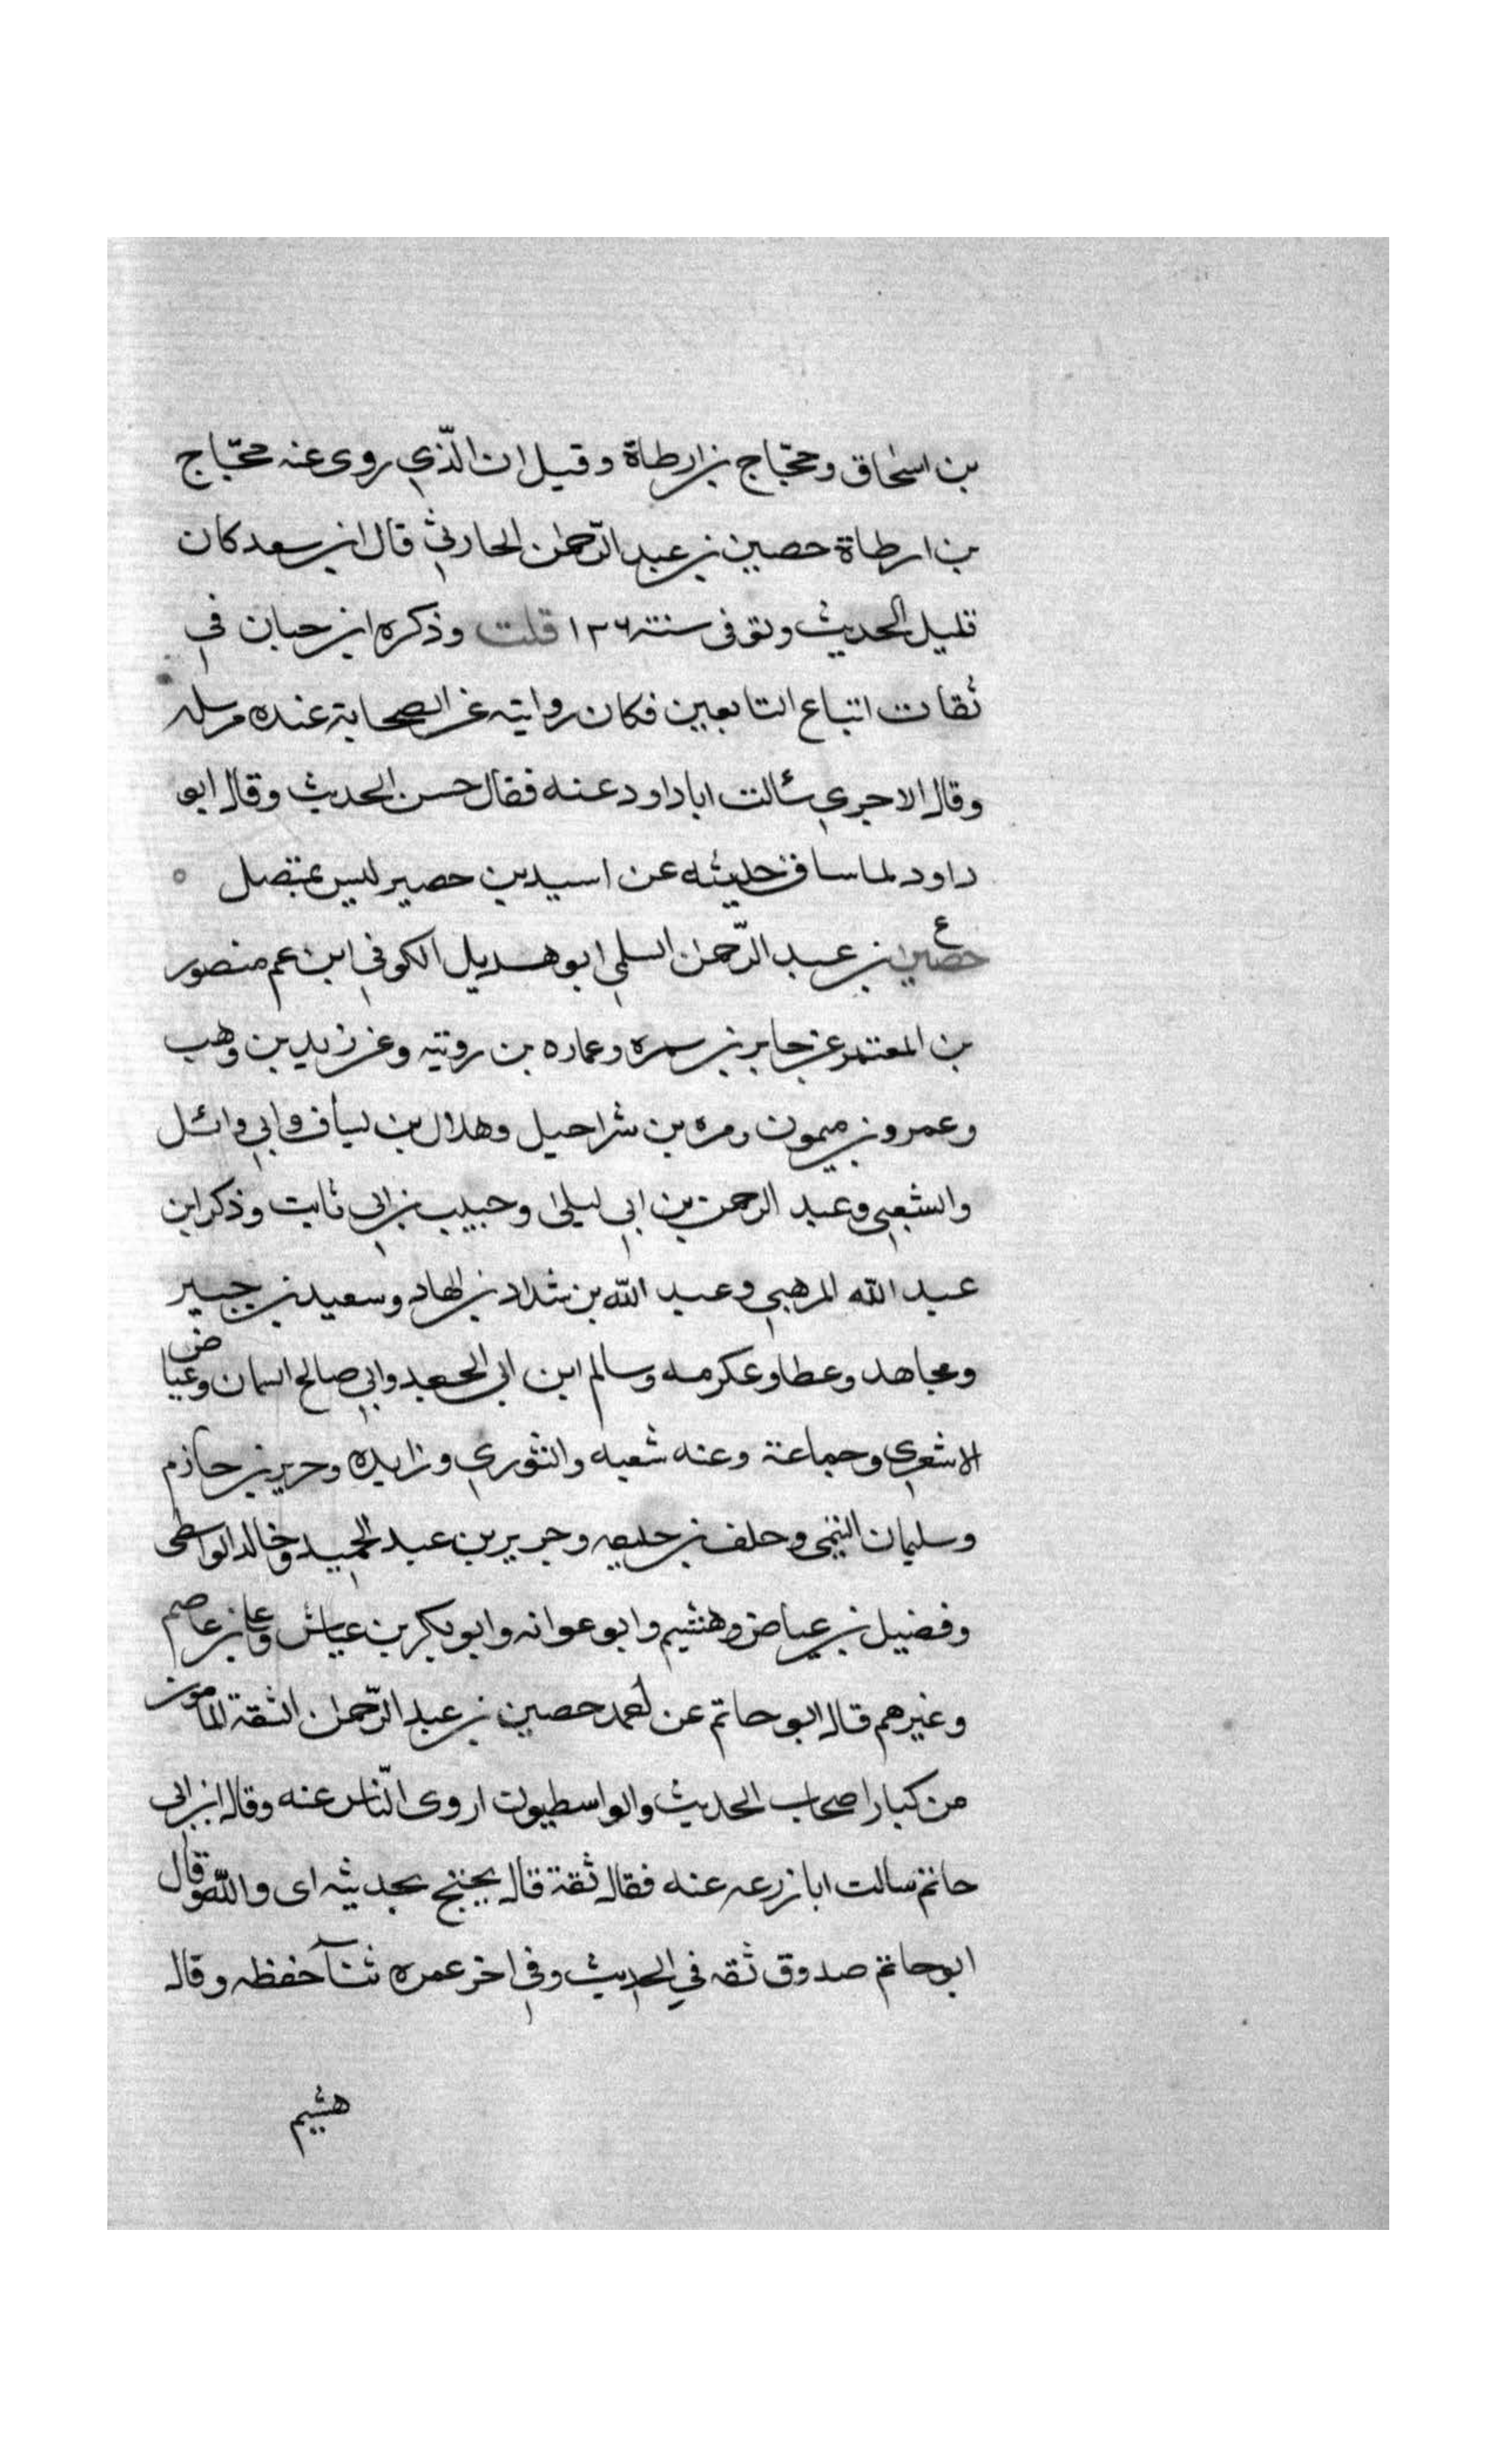 بن اسحاق وحجّاج بن ارطاة وقيل ان الّذي روى عنه حجّاج
بن ارطاة حصين بن عبد الرّحمن الحارثي قال ابن سعد كان
قليل الحديث وتوفى سنته ١٣٦ قلت وذكره ابن حبان في
ثقات اتباع التابعين فكان روايته عن الصحابة عنده مرسله
وقال الاجري سئالت ابا داود عنه فقال حسن الحديث وقال ابو
داود لما ساق حديثه عن اسيد بن حصير ليس بمتصل
ع
حصين بن عبد الرّحمن السلمي ابو هديل الكوفي ابن عم منصور
بن المعتمر عن جابر بن سمره وعماره بن رويته وعن زيد بن وهب
وعمرو بن ميمون ومره بن شراحيل وهلال بن يساف وابي وائل
والشعبي وعبد الرحمن بن ابي ليلى وحبيب بن ابي ثابت وذكر ابن
عبد الله المرهبي وعبد الله بن شداد بن الهاد وسعيد بن جبير
ومجاهد وعطا وعكرمه وسالم ابن ابي الجعد وابي صالح السمان وعياض
الاشعري وجماعة وعنه شعبه والثوري وزايده وجرير بن حازم
وسليمان التيمي وحلف بن حليفه وجرير بن عبد الحميد وخالد الواسطى
وفضيل بن عياض وهشيم وابو عوانه وابو بكر بن عياش وعلي بن عاصم
وغيرهم قال ابو حاتم عن احمد حصين بن عبد الرّحمن الثقة المامون
من كبار اصحاب الحديث والواسطيون اروى النّاس عنه وقال ابن ابي
حاتم سالت ابا زرعه عنه فقال ثقة قال يحتج بحديثه اى والله وقال
ابو حاتم صدوق ثقه في الحديث وفي اخر عمره حفظه وقال
هشيم